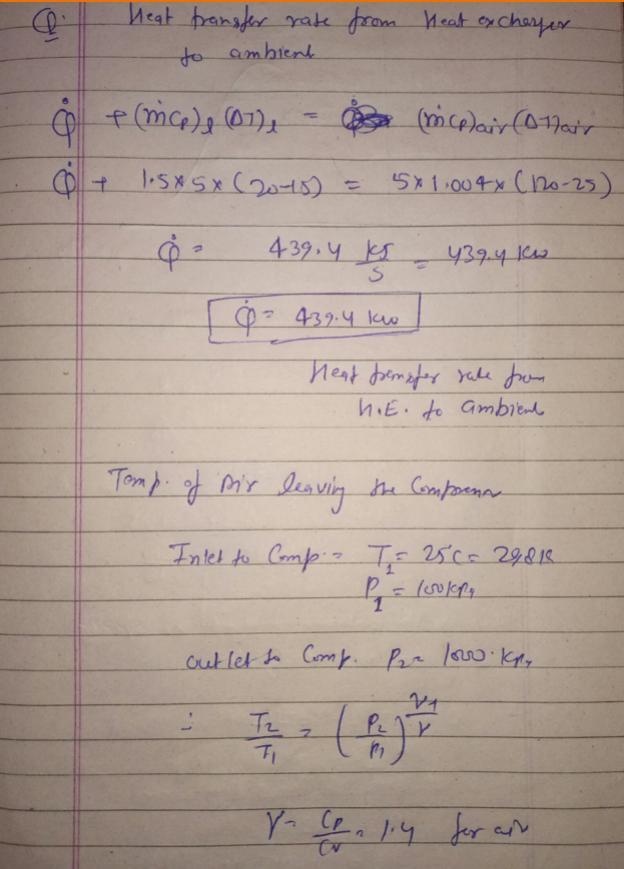 Q. Heat transfer rate from Heat exchanger
to ambient
Q̇ + (ṁcp)l (ΔT)l = (ṁcp)air (ΔT)air
Q̇ + 1.5 * 5 * (20-15) = 5 * 1.004 * (120-25)
Q̇ = 439.4 kJ/s = 439.4 kW
Q̇ = 439.4 kW
Heat transfer rate from
H.E. to ambient
Temp. of Air leaving the Compressor
Inlet to Comp. = T1 = 25°C = 298K
P1 = 100 kPa
outlet to Comp. P2 = 1000 kPa
∴ T2/T1 = (P2/P1)^(γ-1/γ)
γ = Cp/Cv = 1.4 for air